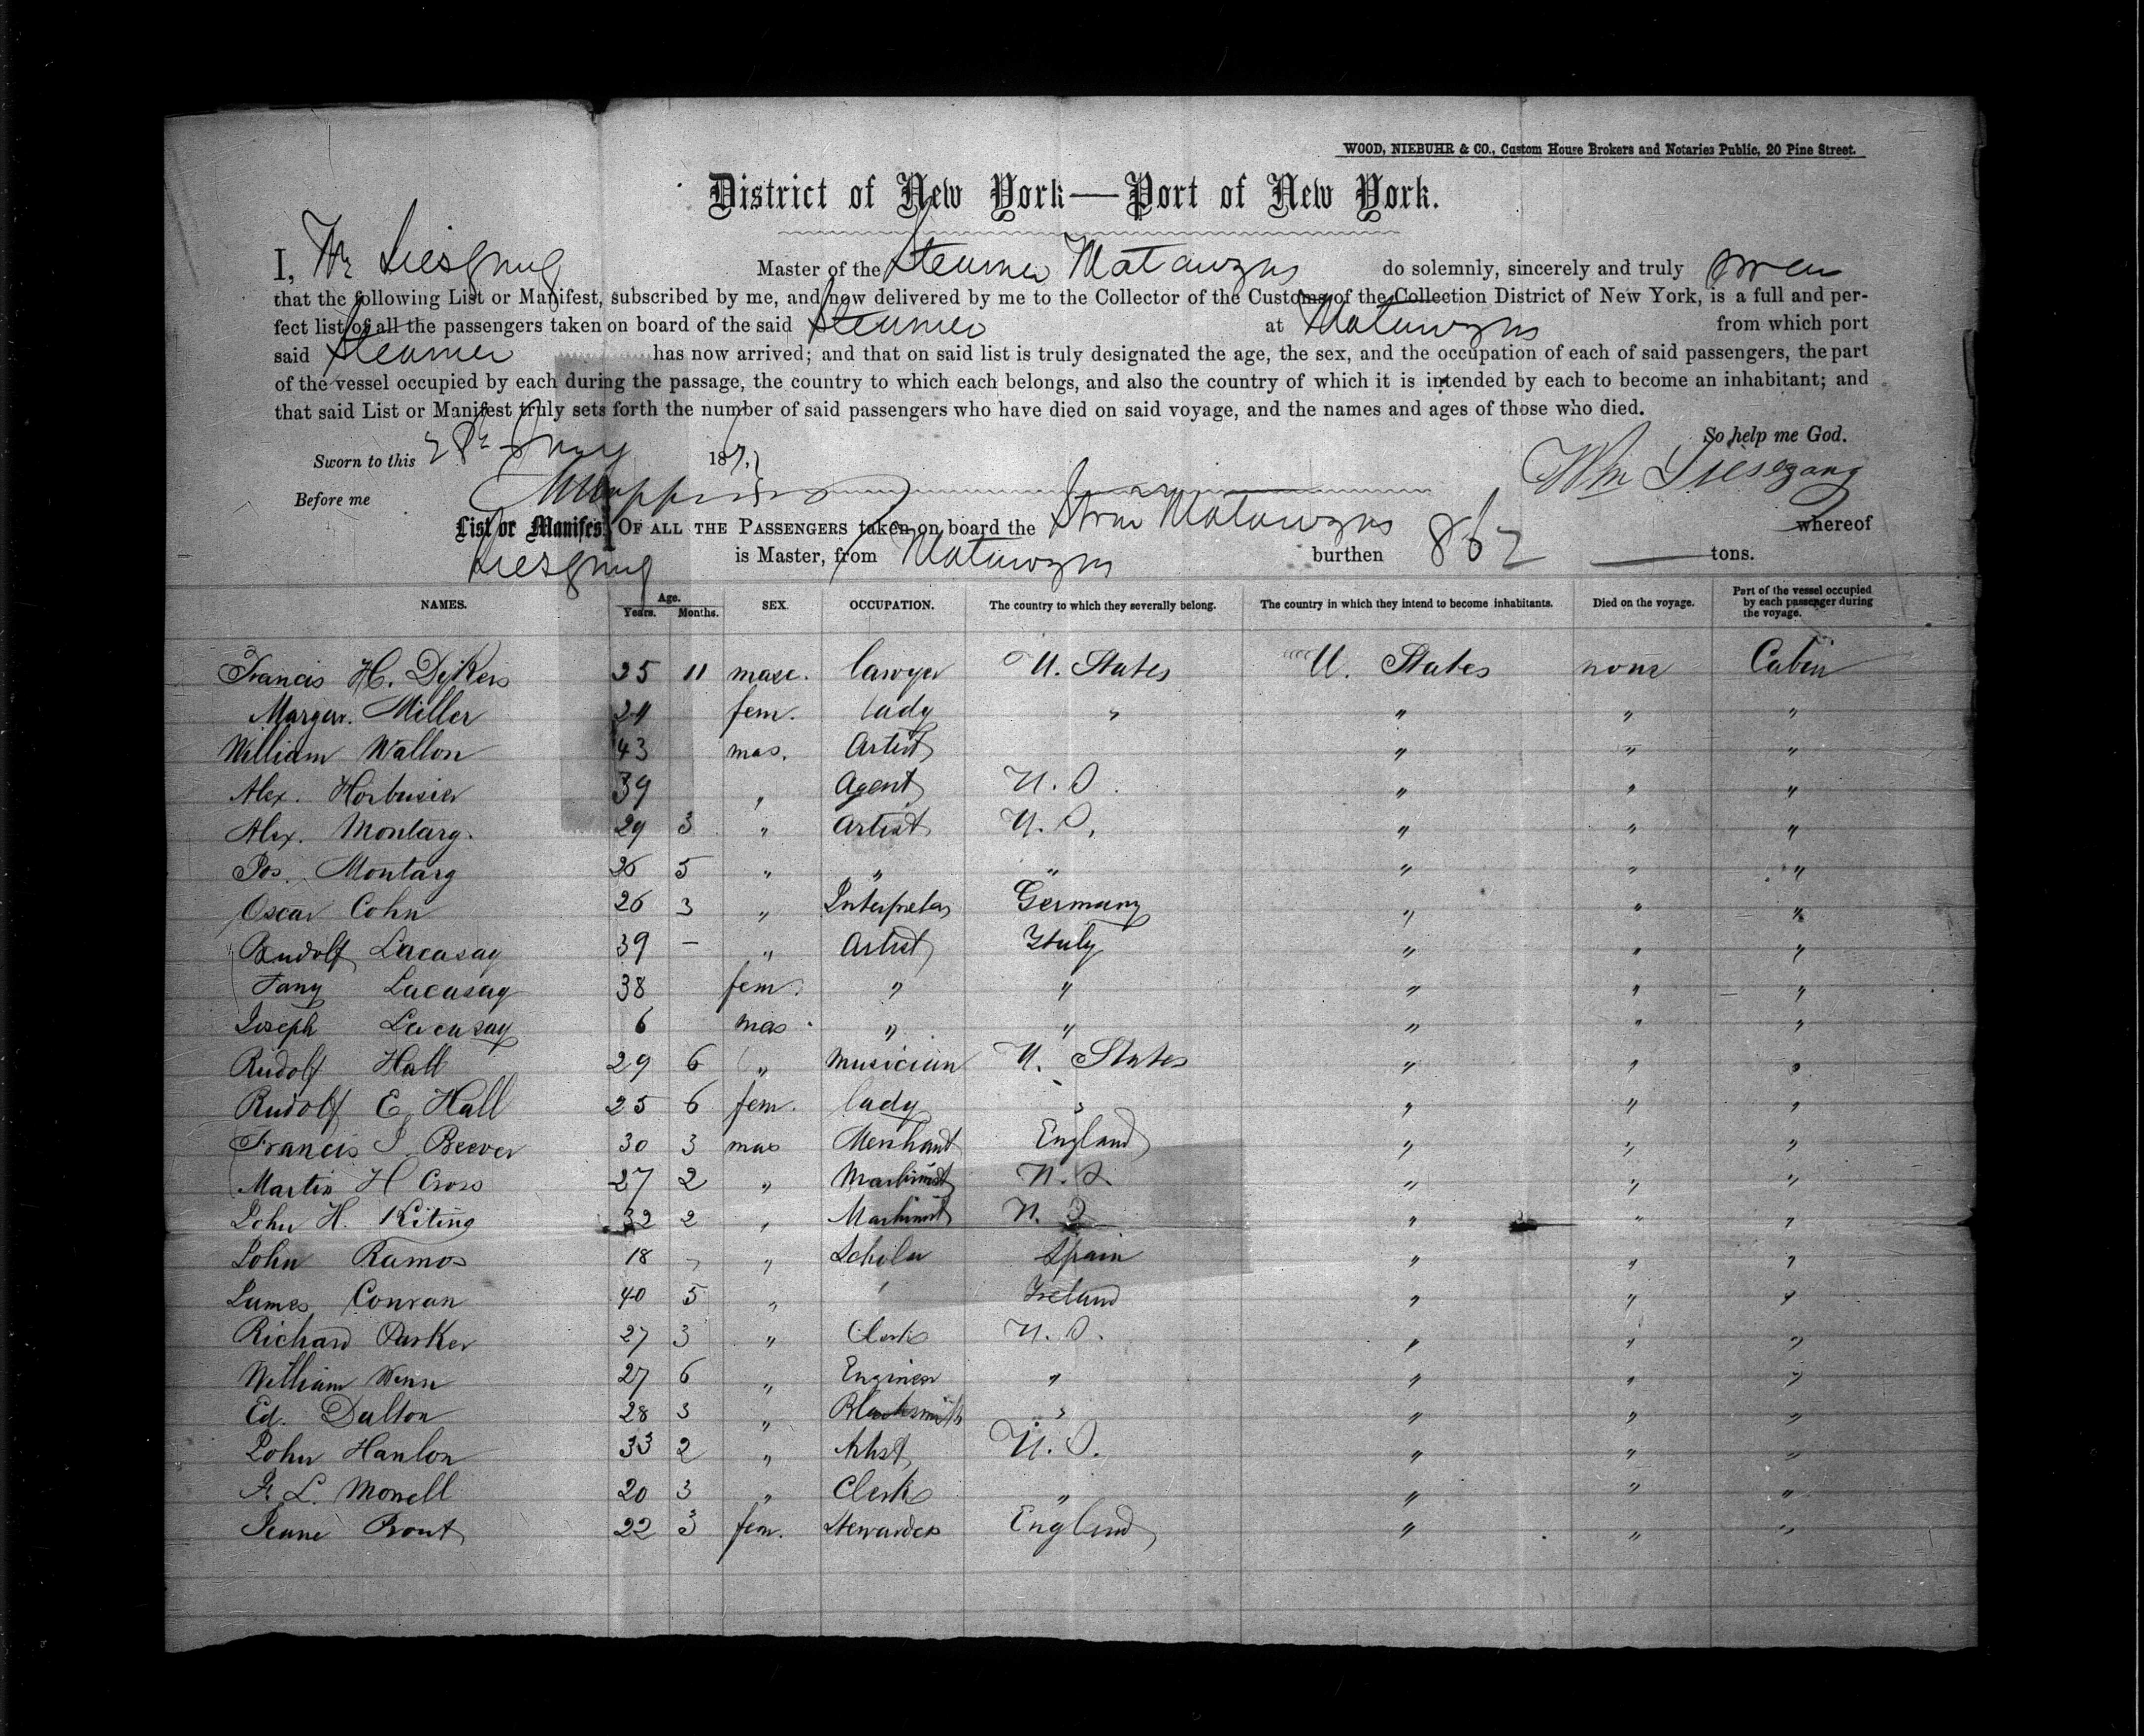 WOOD, NIEBUHR & CO., Custom House Brokers and Notaries Public, 20 Pine Street.
District of New York—Port of New York.
I, Wm Liesgang Master of the Steamer Matanzas do solemnly, sincerely and truly swear
that the following List or Manifest, subscribed by me, and now delivered by me to the Collector of the Customs of the Collection District of New York, is a full and per-
fect list of all the passengers taken on board of the said Steamer at Matanzas from which port
said Steamer has now arrived; and that on said list is truly designated the age, the sex, and the occupation of each of said passengers, the part
of the vessel occupied by each during the passage, the country to which each belongs, and also the country of which it is intended by each to become an inhabitant; and
that said List or Manifest truly sets forth the number of said passengers who have died on said voyage, and the names and ages of those who died.
So help me God.
Sworn to this 28th 187
Wm Liesegang
Before me
List or Manifest OF ALL THE PASSENGERS taken on board the Stmr Matanzas whereof
Liesgang is Master, from Matanzas burthen 862 tons.
NAMES. Age. Years. Months. SEX. OCCUPATION. The country to which they severally belong. The country in which they intend to become inhabitants. Died on the voyage. Part of the vessel occupied by each passenger during the voyage.
Francis H. Dykers 25 11 masc. lawyer U. States U. States none Cabin
Margar. Miller 24 fem. lady " " " "
William Wallon 43 mas. Artist " " "
Alex. 39 " Agent U. S. " " "
Alex. Montarg. 29 3 " Artist U. S. " " "
Jos. Montarg 26 5 " " " " " "
Oscar Cohn 26 3 " Interpreter Germany " " "
Rudolf Lacasay 39 — " Artist Italy " " "
Fany Lacasay 38 fem. " " " " "
Joseph Lacasay 6 mas. " " " " "
Rudolf Hall 29 6 " Musician U. States " " "
Rudolf E. Hall 25 6 fem. lady " " " "
Francis J. Beever 30 3 mas Merchant England " " "
Martin H Cross 27 2 " Machinist U. S. " " "
John H. Kiting 32 2 " Machinist U. S. " " "
John Ramos 18 - " Scholar Spain " " "
James Conran 40 5 " " Ireland " " "
Richard Parker 27 3 " Clerk U. S. " " "
William Winn 27 6 " Engineer " " " "
Ed. Dalton 28 3 " Blacksmith " " " "
John Hanlon 33 2 " Artist U. S. " " "
L. Monell 20 3 " Clerk " " " "
Jeane Prout 22 3 fem. Stewardess England " " "